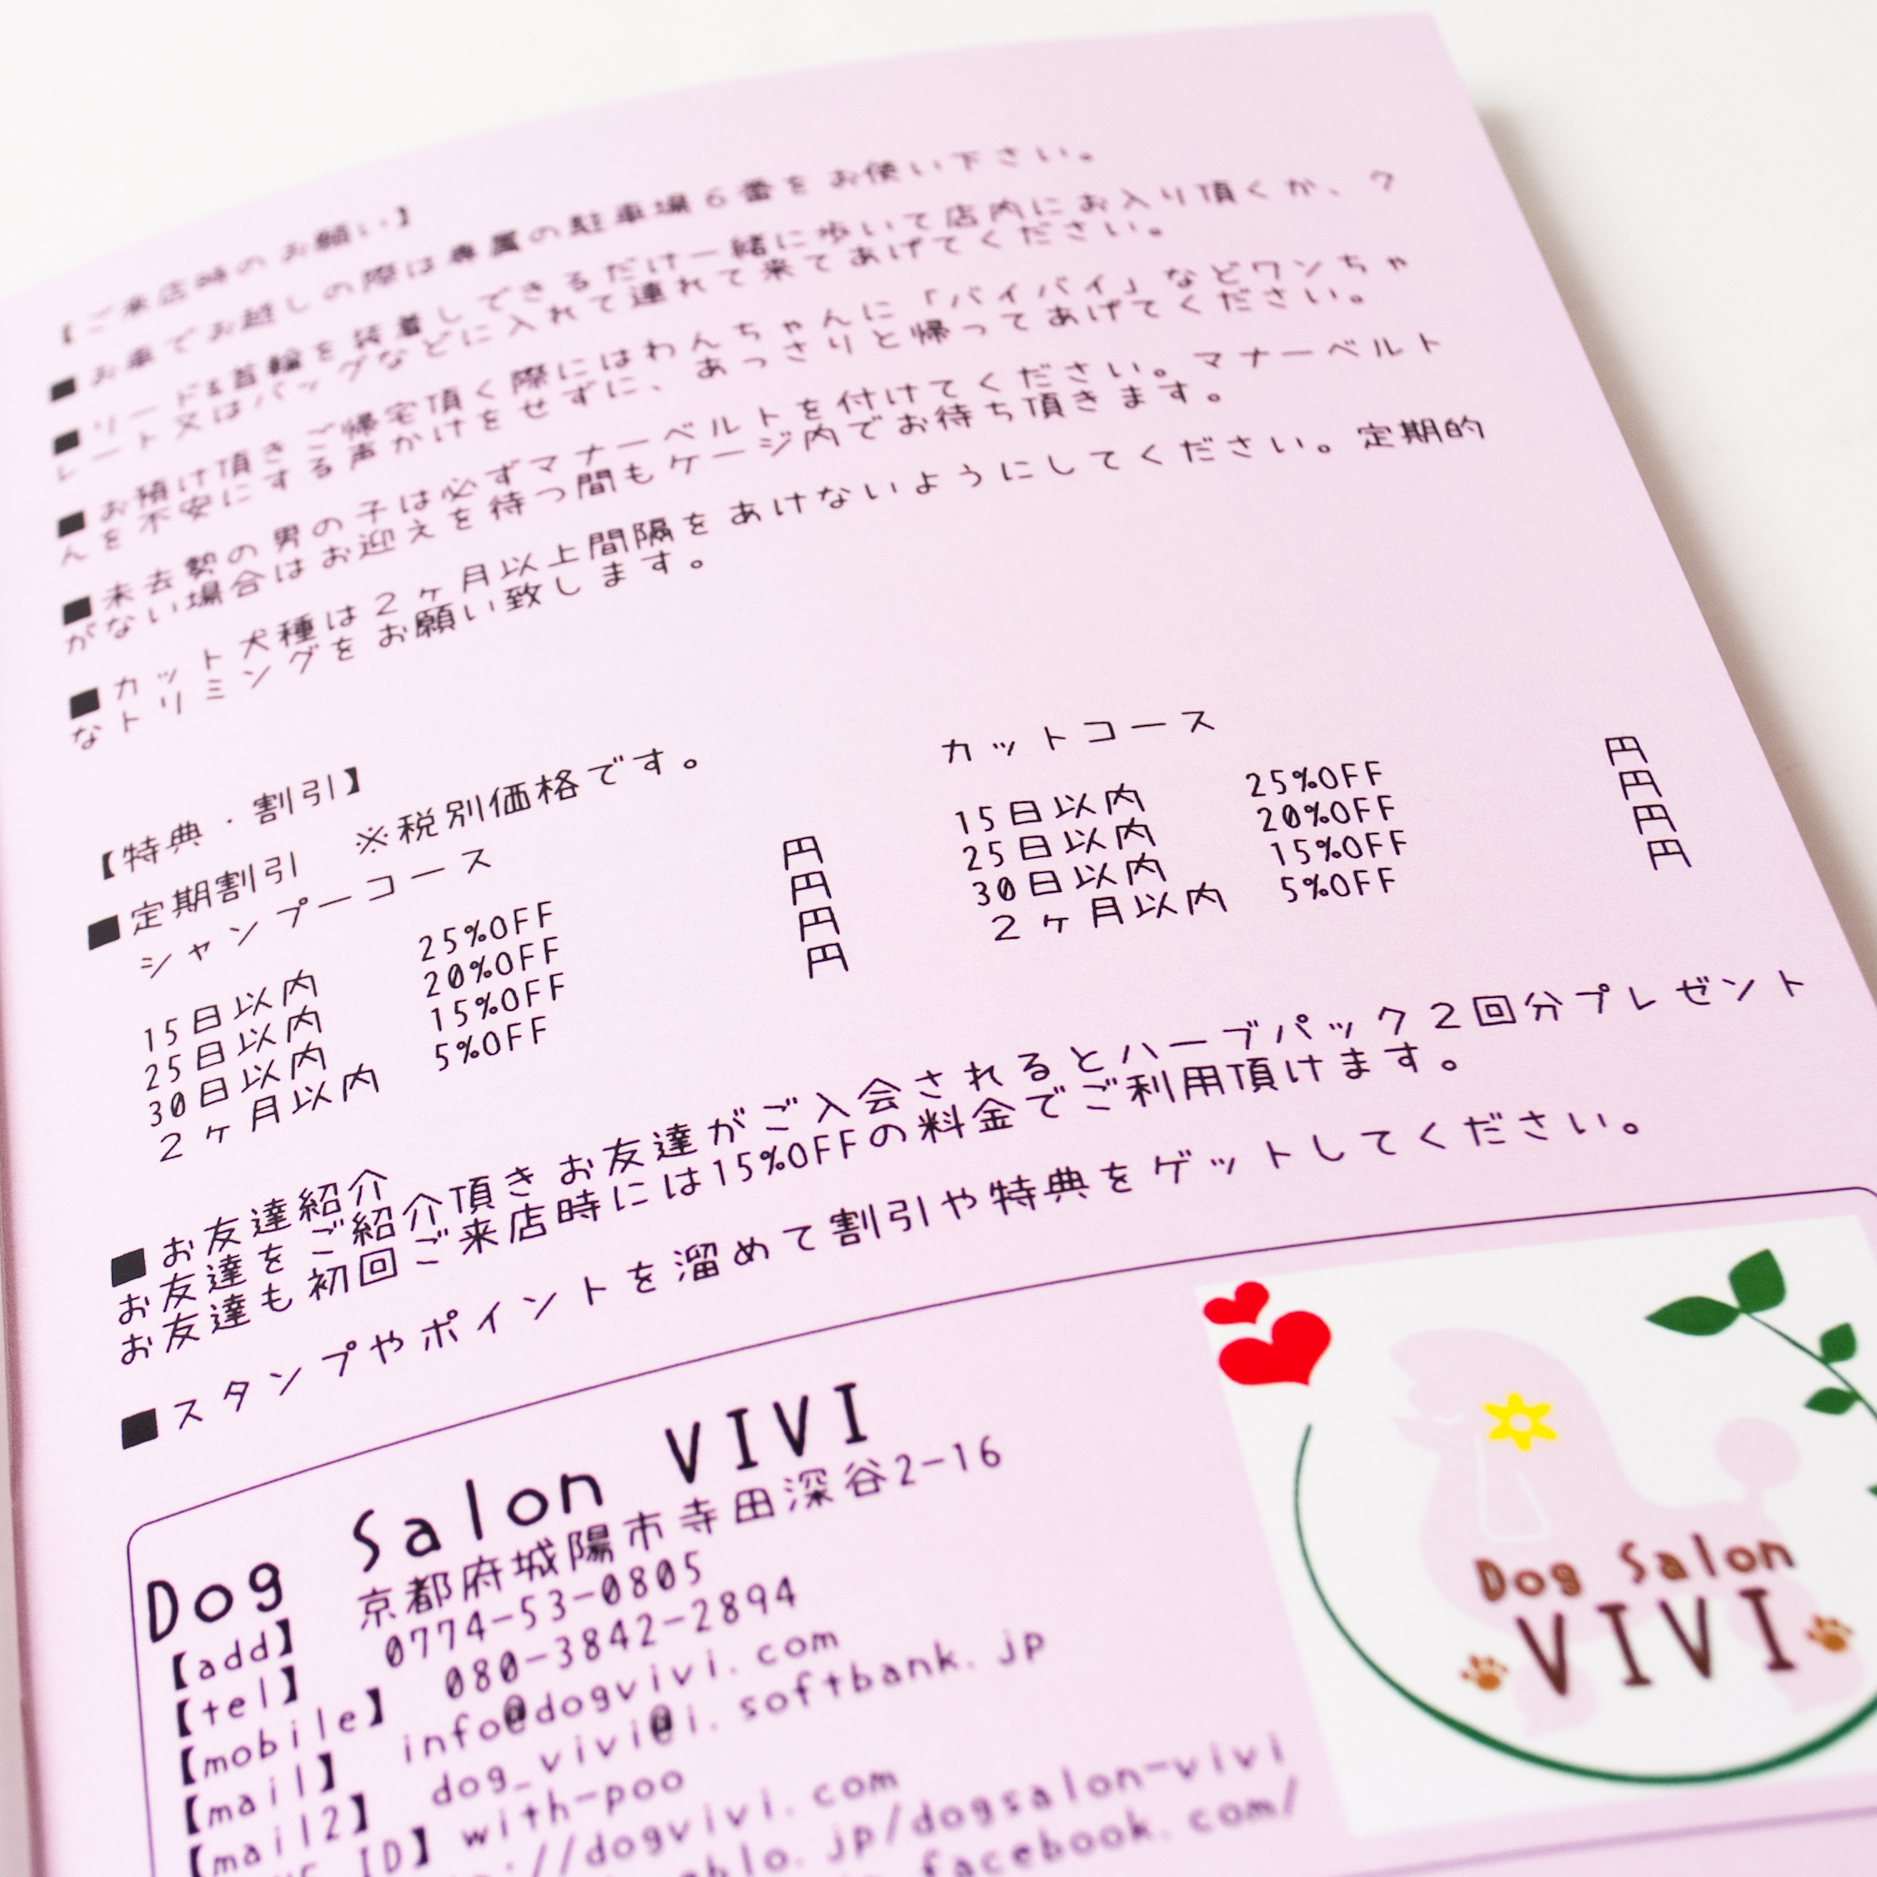 【ご来店時のお願い】
■お車でお越しの際は専属の駐車場6番をお使い下さい。
■リード&首輪を装着しできるだけ一緒に歩いて店内にお入り頂くか、ク
レート又はバッグなどに入れて連れて来てあげてください。
■お預け頂きご帰宅頂く際にはわんちゃんに「バイバイ」などワンちゃ
んを不安にする声かけをせずに、あっさりと帰ってあげてください。
■未去勢の男の子は必ずマナーベルトを付けてください。マナーベルト
がない場合はお迎えを待つ間もケージ内でお待ち頂きます。
■カット犬種は2ヶ月以上間隔をあけないようにしてください。定期的
なトリミングをお願い致します。
【特典・割引】
■定期割引 ※税別価格です。
シャンプーコース
15日以内 25%OFF 円
25日以内 20%OFF 円
30日以内 15%OFF 円
2ヶ月以内 5%OFF 円
カットコース
15日以内 25%OFF 円
25日以内 20%OFF 円
30日以内 15%OFF 円
2ヶ月以内 5%OFF 円
■お友達紹介
お友達をご紹介頂きお友達がご入会されるとハーブパック2回分プレゼント
お友達も初回ご来店時には15%OFFの料金でご利用頂けます。
■スタンプやポイントを溜めて割引や特典をゲットしてください。
Dog Salon VIVI
【add】 京都府城陽市寺田深谷2-16
【tel】 0774-53-0805
【mobile】 080-3842-2894
【mail】 info@dogvivi.com
【mail2】 dog_vivi@i.softbank.jp
ID】with-poo
://dogvivi.com
.jp/dogsalon-vivi
facebook.com/
Dog Salon
VIVI